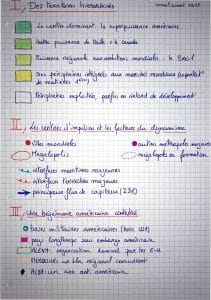 I, Des territoires hiérarchisés
Le centre dominant : la superpuissance américaine
Autre puissance du Nord : le Canada
Puissance régionale aux ambitions mondiales : le Brésil
Des périphéries intégrées aux marchés mondiaux
de matières
Périphéries exploitées, parfois en retard de développement
II, Les centres d'impulsion et les facteurs du dynamisme
Villes mondiales
autres métropoles majeures
Megalopolis
mégalopole en formation
interfaces maritimes majeures
interfaces terrestres majeures
principaux flux de capitaux (IDE)
III, Une hégémonie américaine contestée
bases militaires américaines (hors USA)
pays longtemps sous embargo américain
ALENA : organisation dominée par les E-U
MERCOSUR : un bloc régional concurrent
ALBA : un axe anti-américain